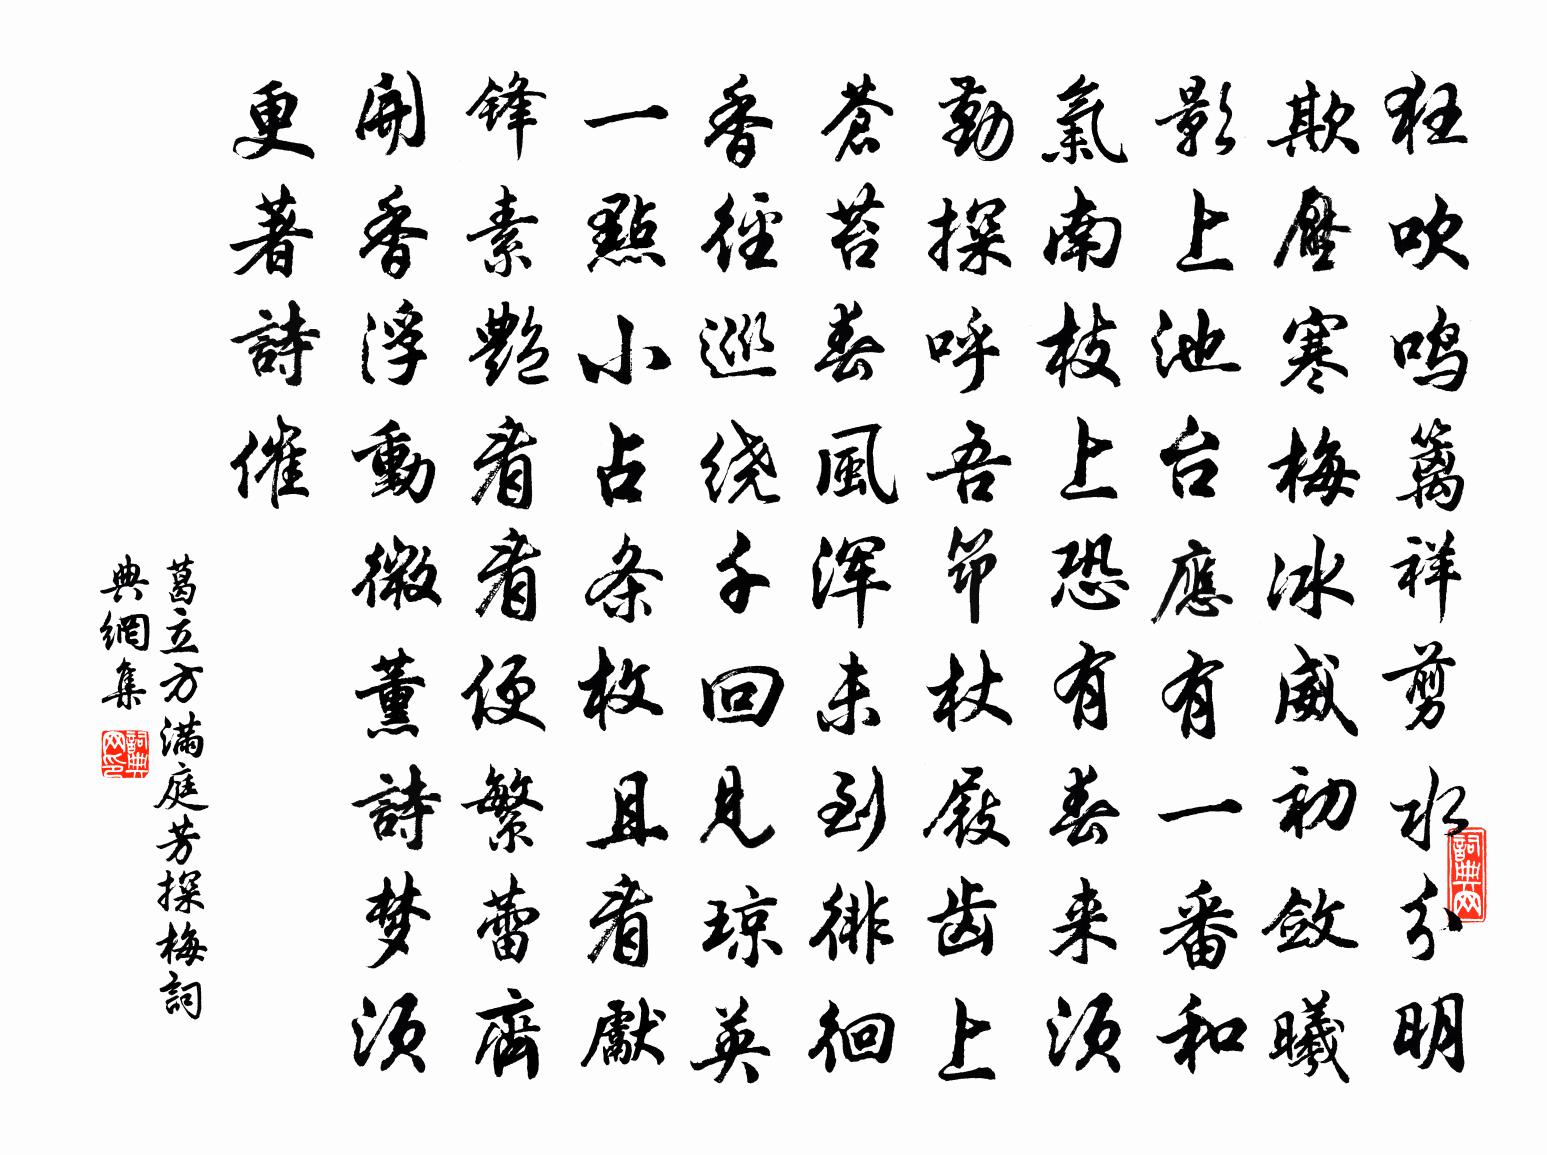 狂吹鸣篱祥剪水分明
欺壓寒梅冰威初斂曦
影上池台應有一番和
氣南枝上恐有春来须
勤探呼吾筇杖屐齿上
蒼苔春風浑未到徘徊
香徑巡绕千回见琼英
一點小占条枚且看獻
锋素艷看看便繁蕾齊
開香浮動微薰詩梦须
更著詩催
葛立方滿庭芳探梅詞
典網集
詞典网
詞典网印